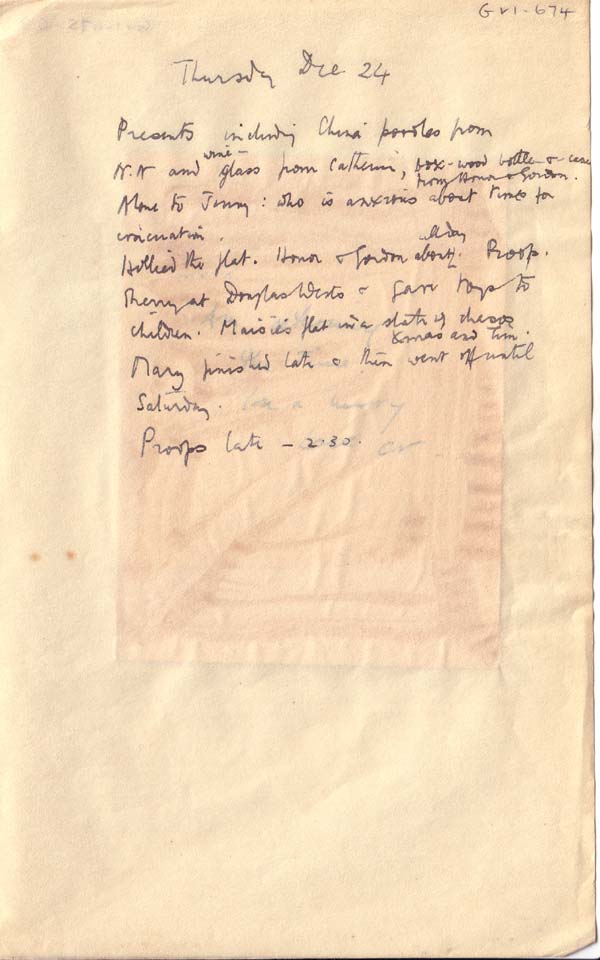 GV1-674
Thursday Dec 24
Presents including China poodles from
N.N and wine-glass from Catherine, box-wood bottle & case from Honor & Gordon.
Alone to Jenny: who is anxious about times for
evacuation.
Hollied the flat. Honor & Gordon about all day. Proop.
Sherry at Douglas Wests & gave toys to
children. Maisie's flat in a state of chaos
Xmas and Tim.
Mary finished late & then went off until
Saturday.
Proops late – 2.30.